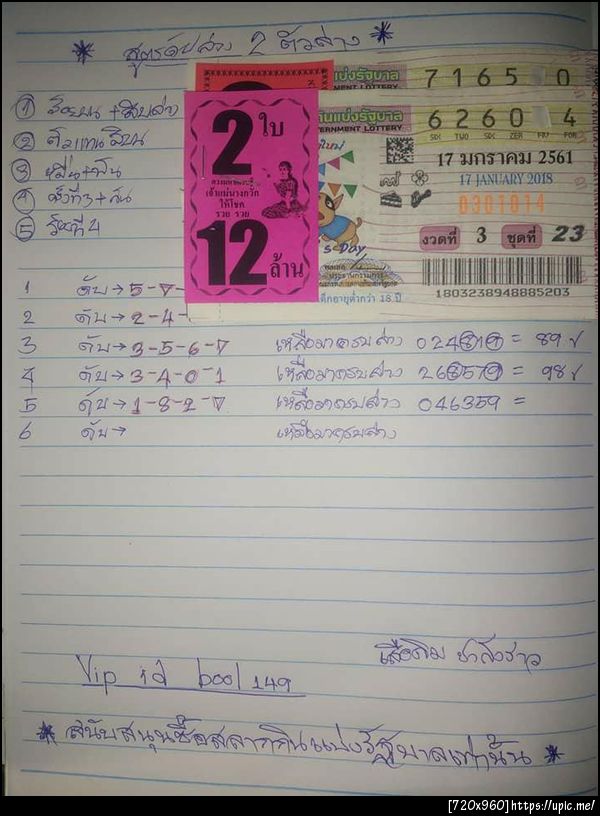 * สูตรดับล่าง 2 ตัวล่าง *
① + สิบล่าง
②
③ หมื่น+พัน
④ ครั้งที่3+
⑤ วันที่
แบ่งรัฐบาล
LOTTERY
7 1 6 5 0
กินแบ่งรัฐบาล
GOVERNMENT LOTTERY
6 2 6 0 4
SIX TWO SIX ZER FOR
17 มกราคม 2561
17 JANUARY 2018
0301014
งวดที่ 3 ชุดที่ 23
1803238948885203
2 ใบ
เจ้าแม่นางกวัก
ให้โชค
รวย รวย
12 ล้าน
's Day
1 ดับ→5-7-
2 ดับ→2-4-
3 ดับ→3-5-6-7 เหลือมาครบล่าง 024819 = 89 ✓
4 ดับ→3-4-0-1 เหลือมาครบล่าง 268579 = 98 ✓
5 ดับ→1-8-2-7 เหลือมาครบล่าง 046359 =
6 ดับ→ เหลือมาครบล่าง
Vip id bool 149
* สนับสนุนซื้อสลากกินแบ่งรัฐบาลเท่านั้น *
[720x960] https://upic.me/